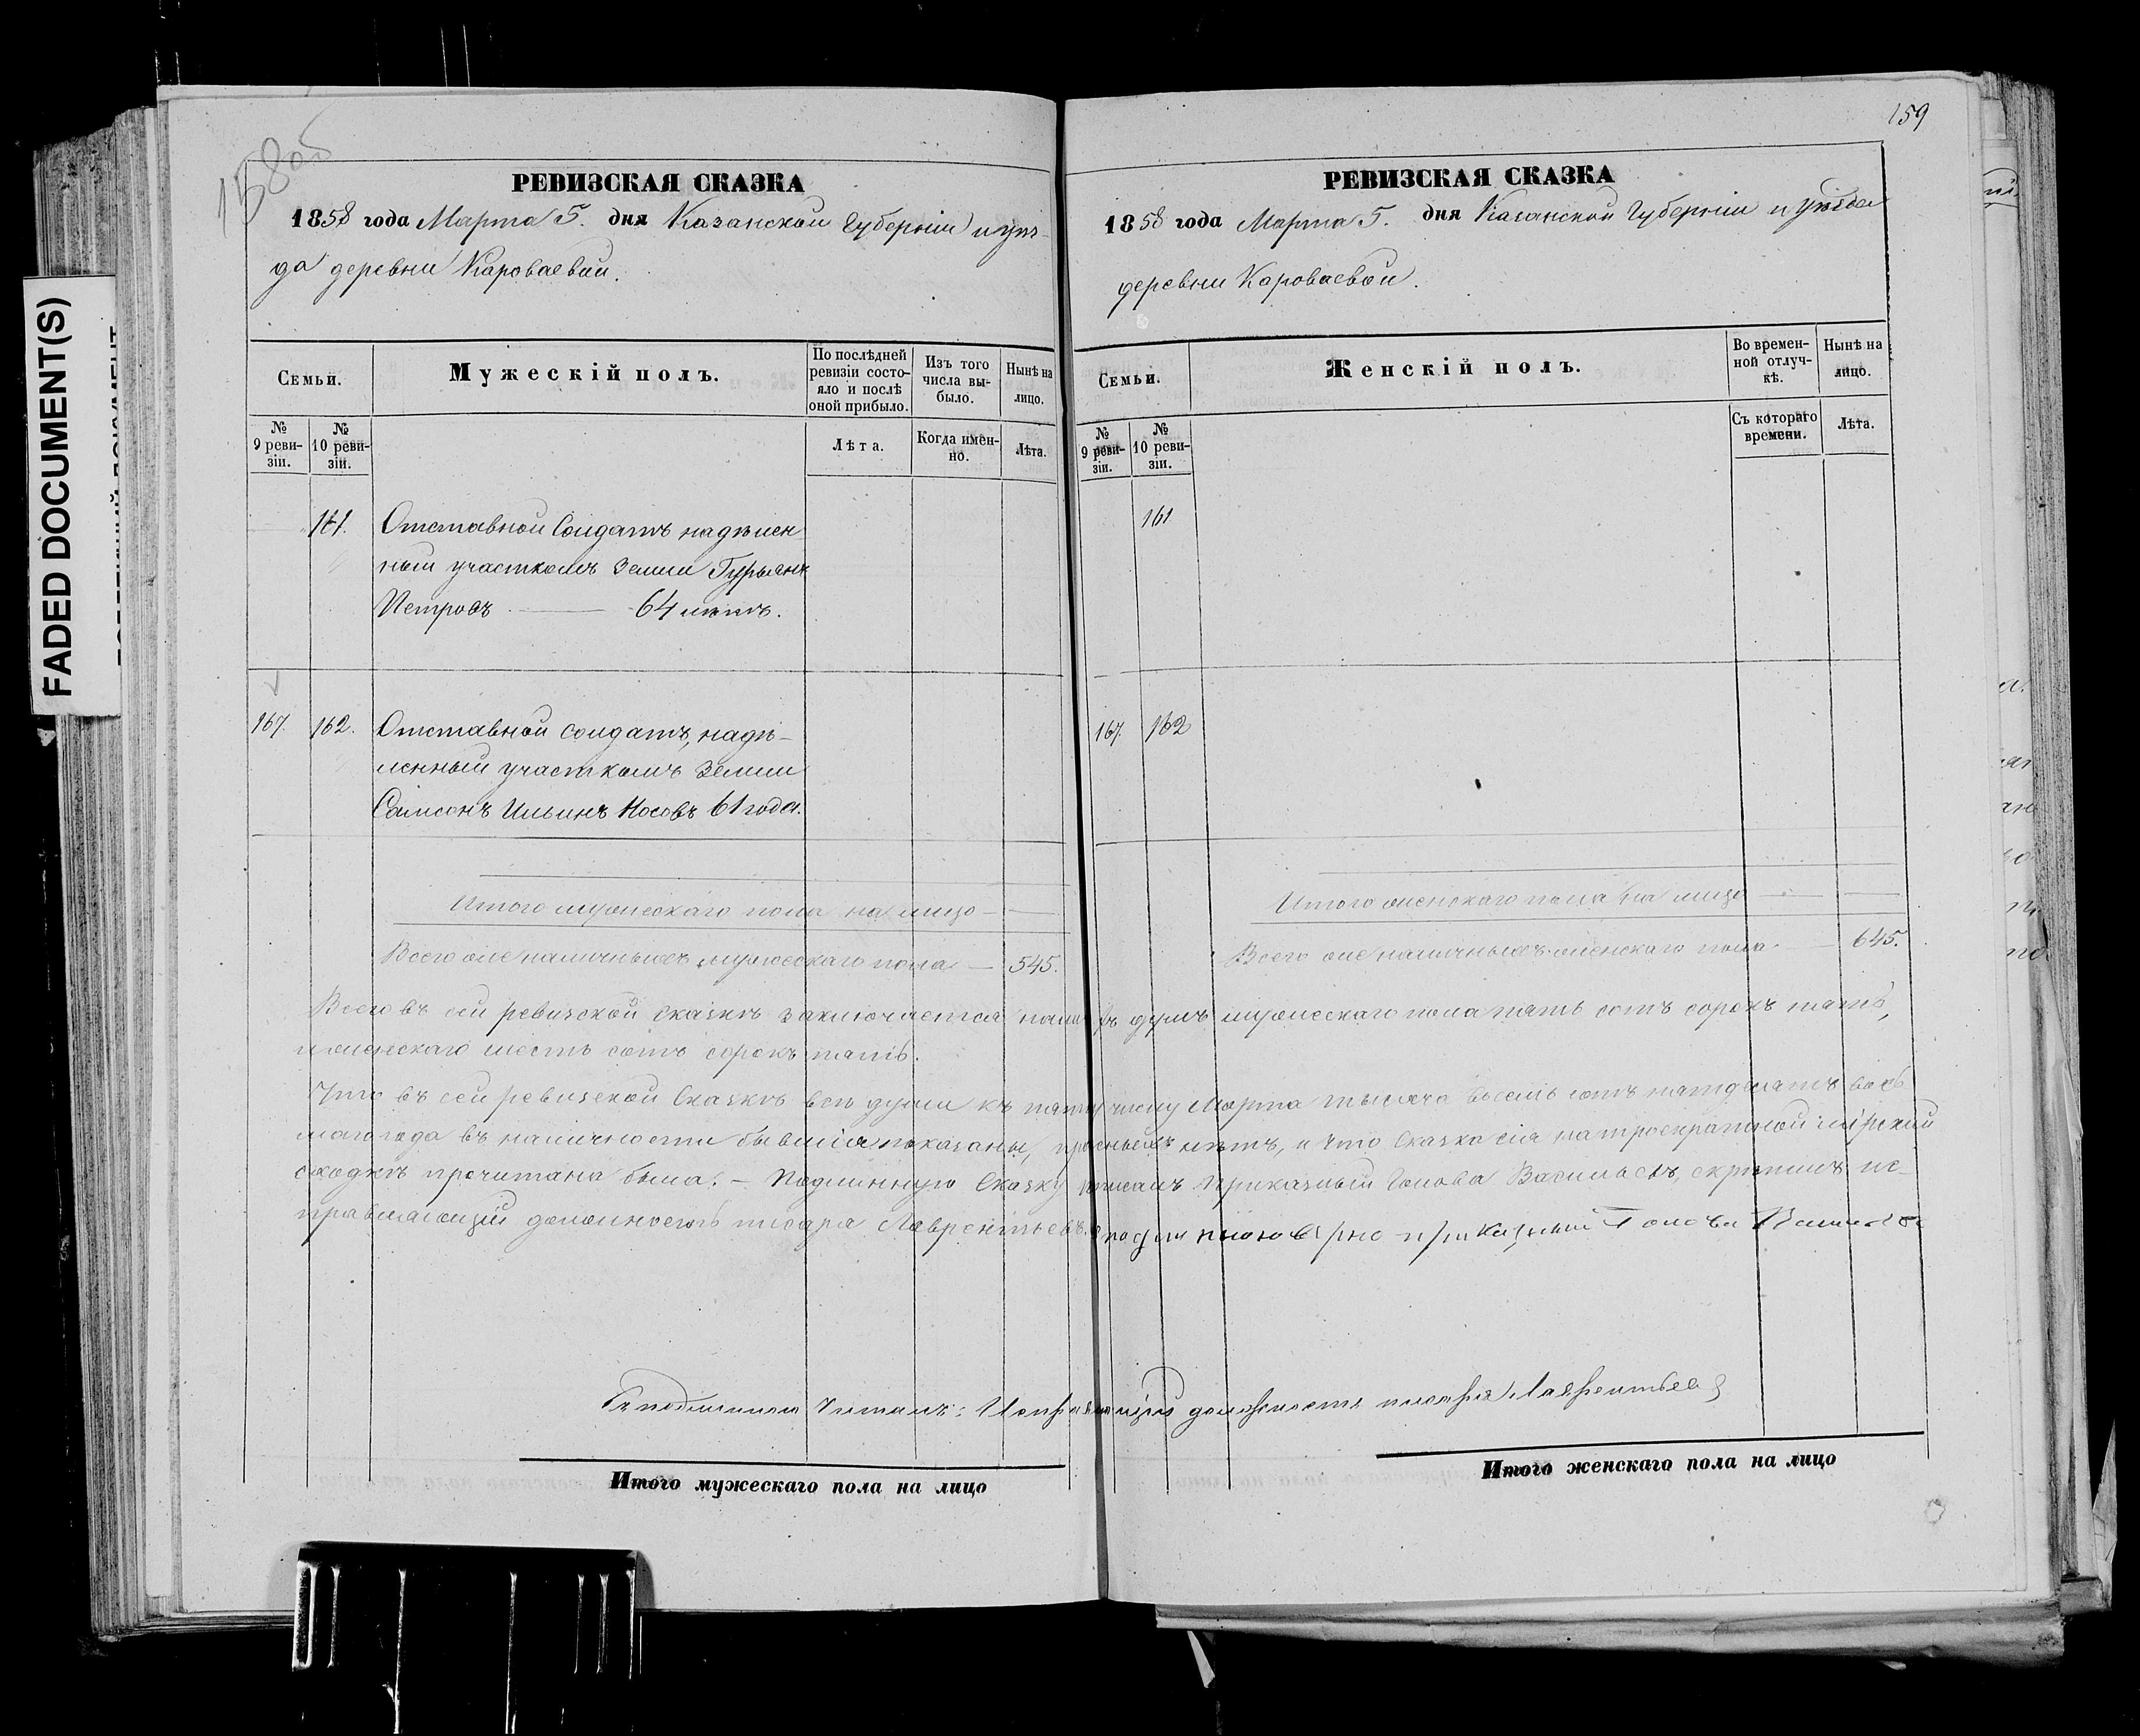 159
158 об
РЕВИЗСКАЯ СКАЗКА
1858 года Марта 5. дня Казанской Губерніи и уѣз-
да деревни Кароваевой.
Семьи.
Мужескій полъ.
По послѣдней ревизіи состо-
яло и послѣ оной прибыло.
Изъ того числа вы-
было.
Нынѣ на лицо.
№ 9 реви-
зіи.
№ 10 реви-
зіи.
Лѣта.
Когда имен-
но.
Лѣта.
161. Отставной Солдатъ надѣлен
ный участкомъ земли Гурьянъ
Петровъ — 64 лѣтъ.
167. 162. Отставной солдатъ, надѣ-
ленный участкомъ земли
Самсонъ Ильинъ Носовъ 61 года.
Итого мужескаго пола на лицо — —
Всего же наличныхъ мужескаго пола — 545.
РЕВИЗСКАЯ СКАЗКА
1858 года Марта 5. дня Казанской Губерніи и уѣзда
деревни Кароваевой.
Семьи.
Женскій полъ.
Во времен-
ной отлуч-
кѣ.
Нынѣ на лицо.
№ 9 реви-
зіи.
№ 10 реви-
зіи.
Съ котораго времени.
Лѣта.
161
167. 162
Итого женскаго пола на лицо — —
Всего же наличныхъ женскаго пола — 645.
Всего въ сей ревизской сказкѣ заключается налицѣ душъ мужескаго пола пять сотъ сорокъ пять,
и женскаго шесть сотъ сорокъ пять.
Что въ сей ревизской Сказкѣ всѣ души къ пятому числу Марта тысяча восемь сотъ пятдесятъ вось
маго года въ наличности бывшія показаны, прописныхъ нѣтъ, и что Сказка сія на троекратной мірской
сходкѣ прочитана была. — Подлинную Сказку подписалъ Приказный Голова Васильевъ, скрѣпилъ ис-
правляющій должность писаря Лаврентьевъ. Съ подлинною вѣрно приказный Голова Васильевъ
Съ подлиннымъ читалъ: Исправляющій должность писаря Лаврентьевъ
Итого мужескаго пола на лицо
Итого женскаго пола на лицо
FADED DOCUMENT(S)